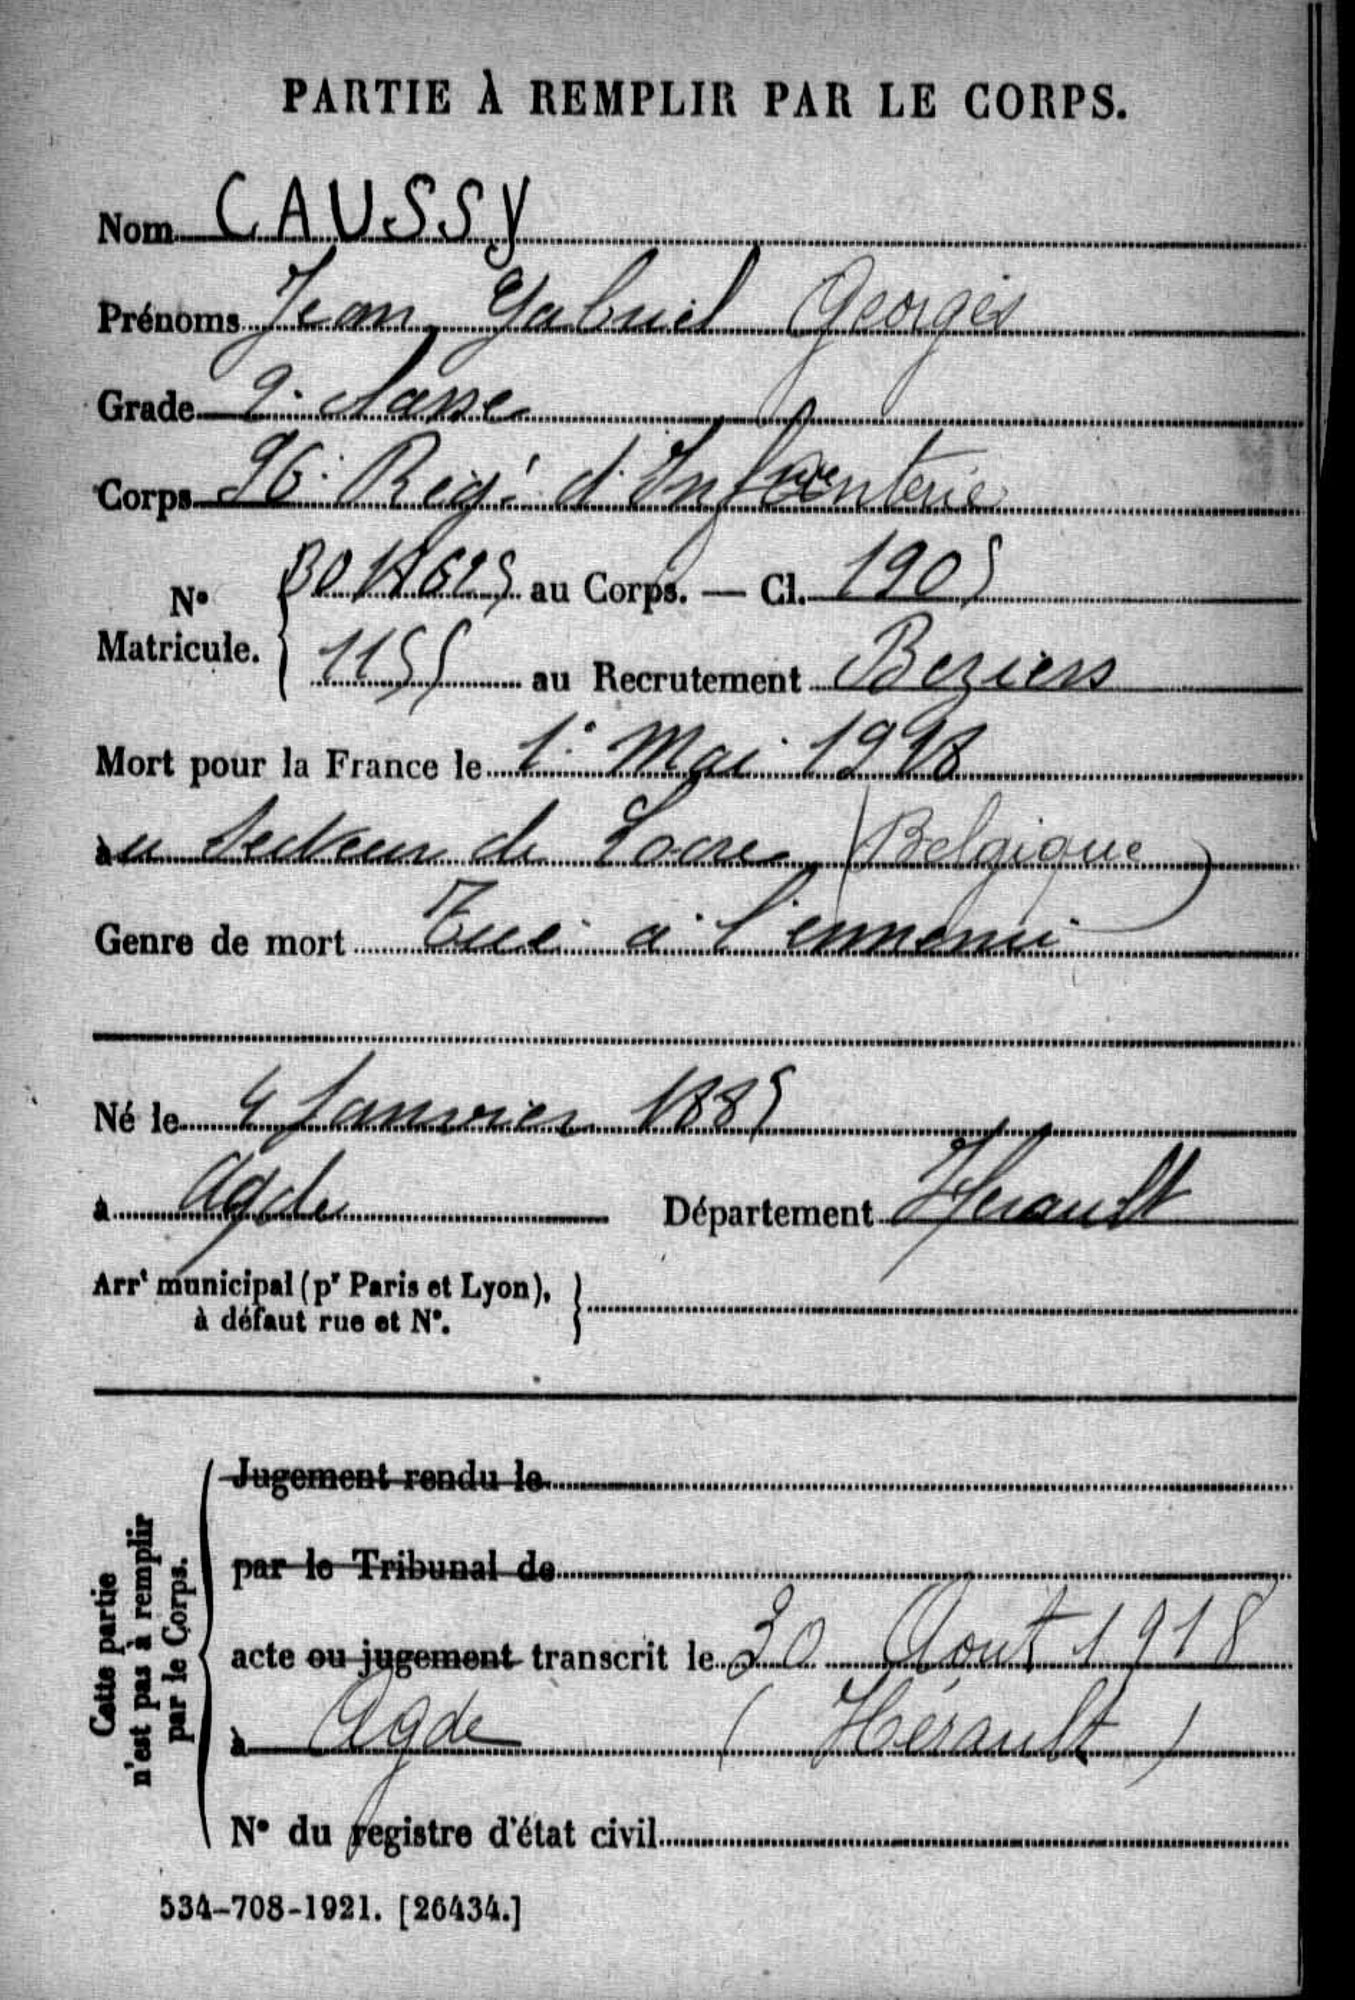 PARTIE À REMPLIR PAR LE CORPS.
Nom CAUSSY
Prénoms Jean Gabriel Georges
Grade 2. classe
Corps 96. Régt d'Infanterie
No Matricule. au Corps. — Cl. 1905
1155 au Recrutement Beziers
Mort pour la France le 1. Mai 1918
au secteur de Locre (Belgique)
Genre de mort Tué à l'ennemi
Né le 4 Janvier 1885
à Agde Département Hérault
Arrt municipal (pr Paris et Lyon),
à défaut rue et No.
Cette partie
n'est pas à remplir
par le Corps.
Jugement rendu le
par le Tribunal de
acte ou jugement transcrit le 30 Aout 1918
à Agde (Hérault)
No du registre d'état civil
534-708-1921. [26434.]